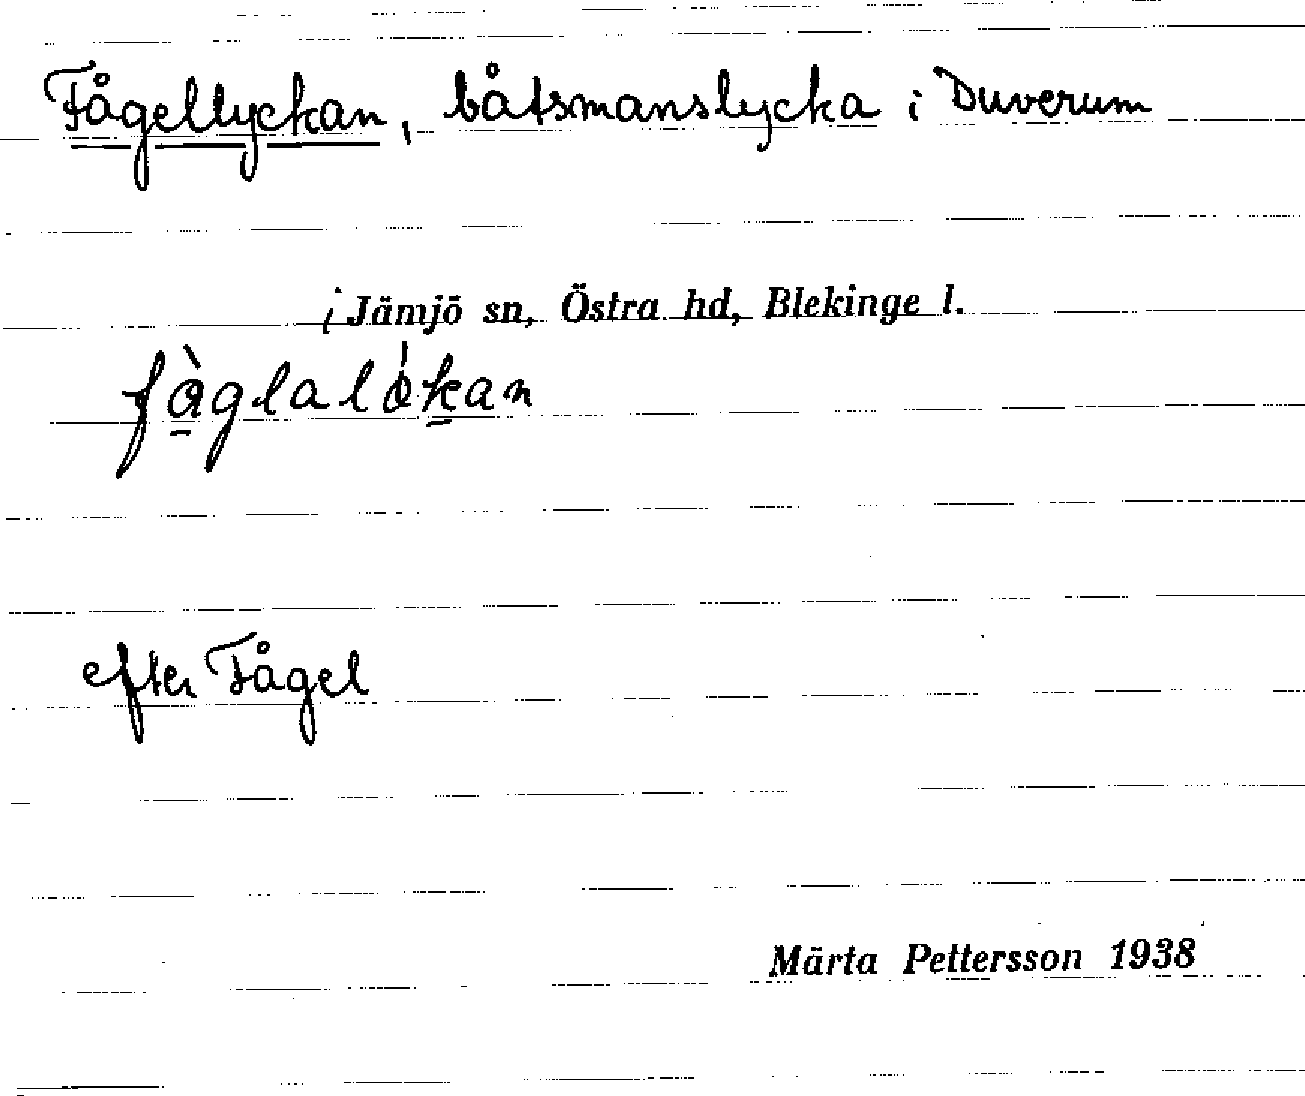 Fågellyckan, båtsmanslycka i Duverum
i Jämjö sn, Östra hd, Blekinge l.
fàglalókan
efter Fågel
Märta Pettersson 1938